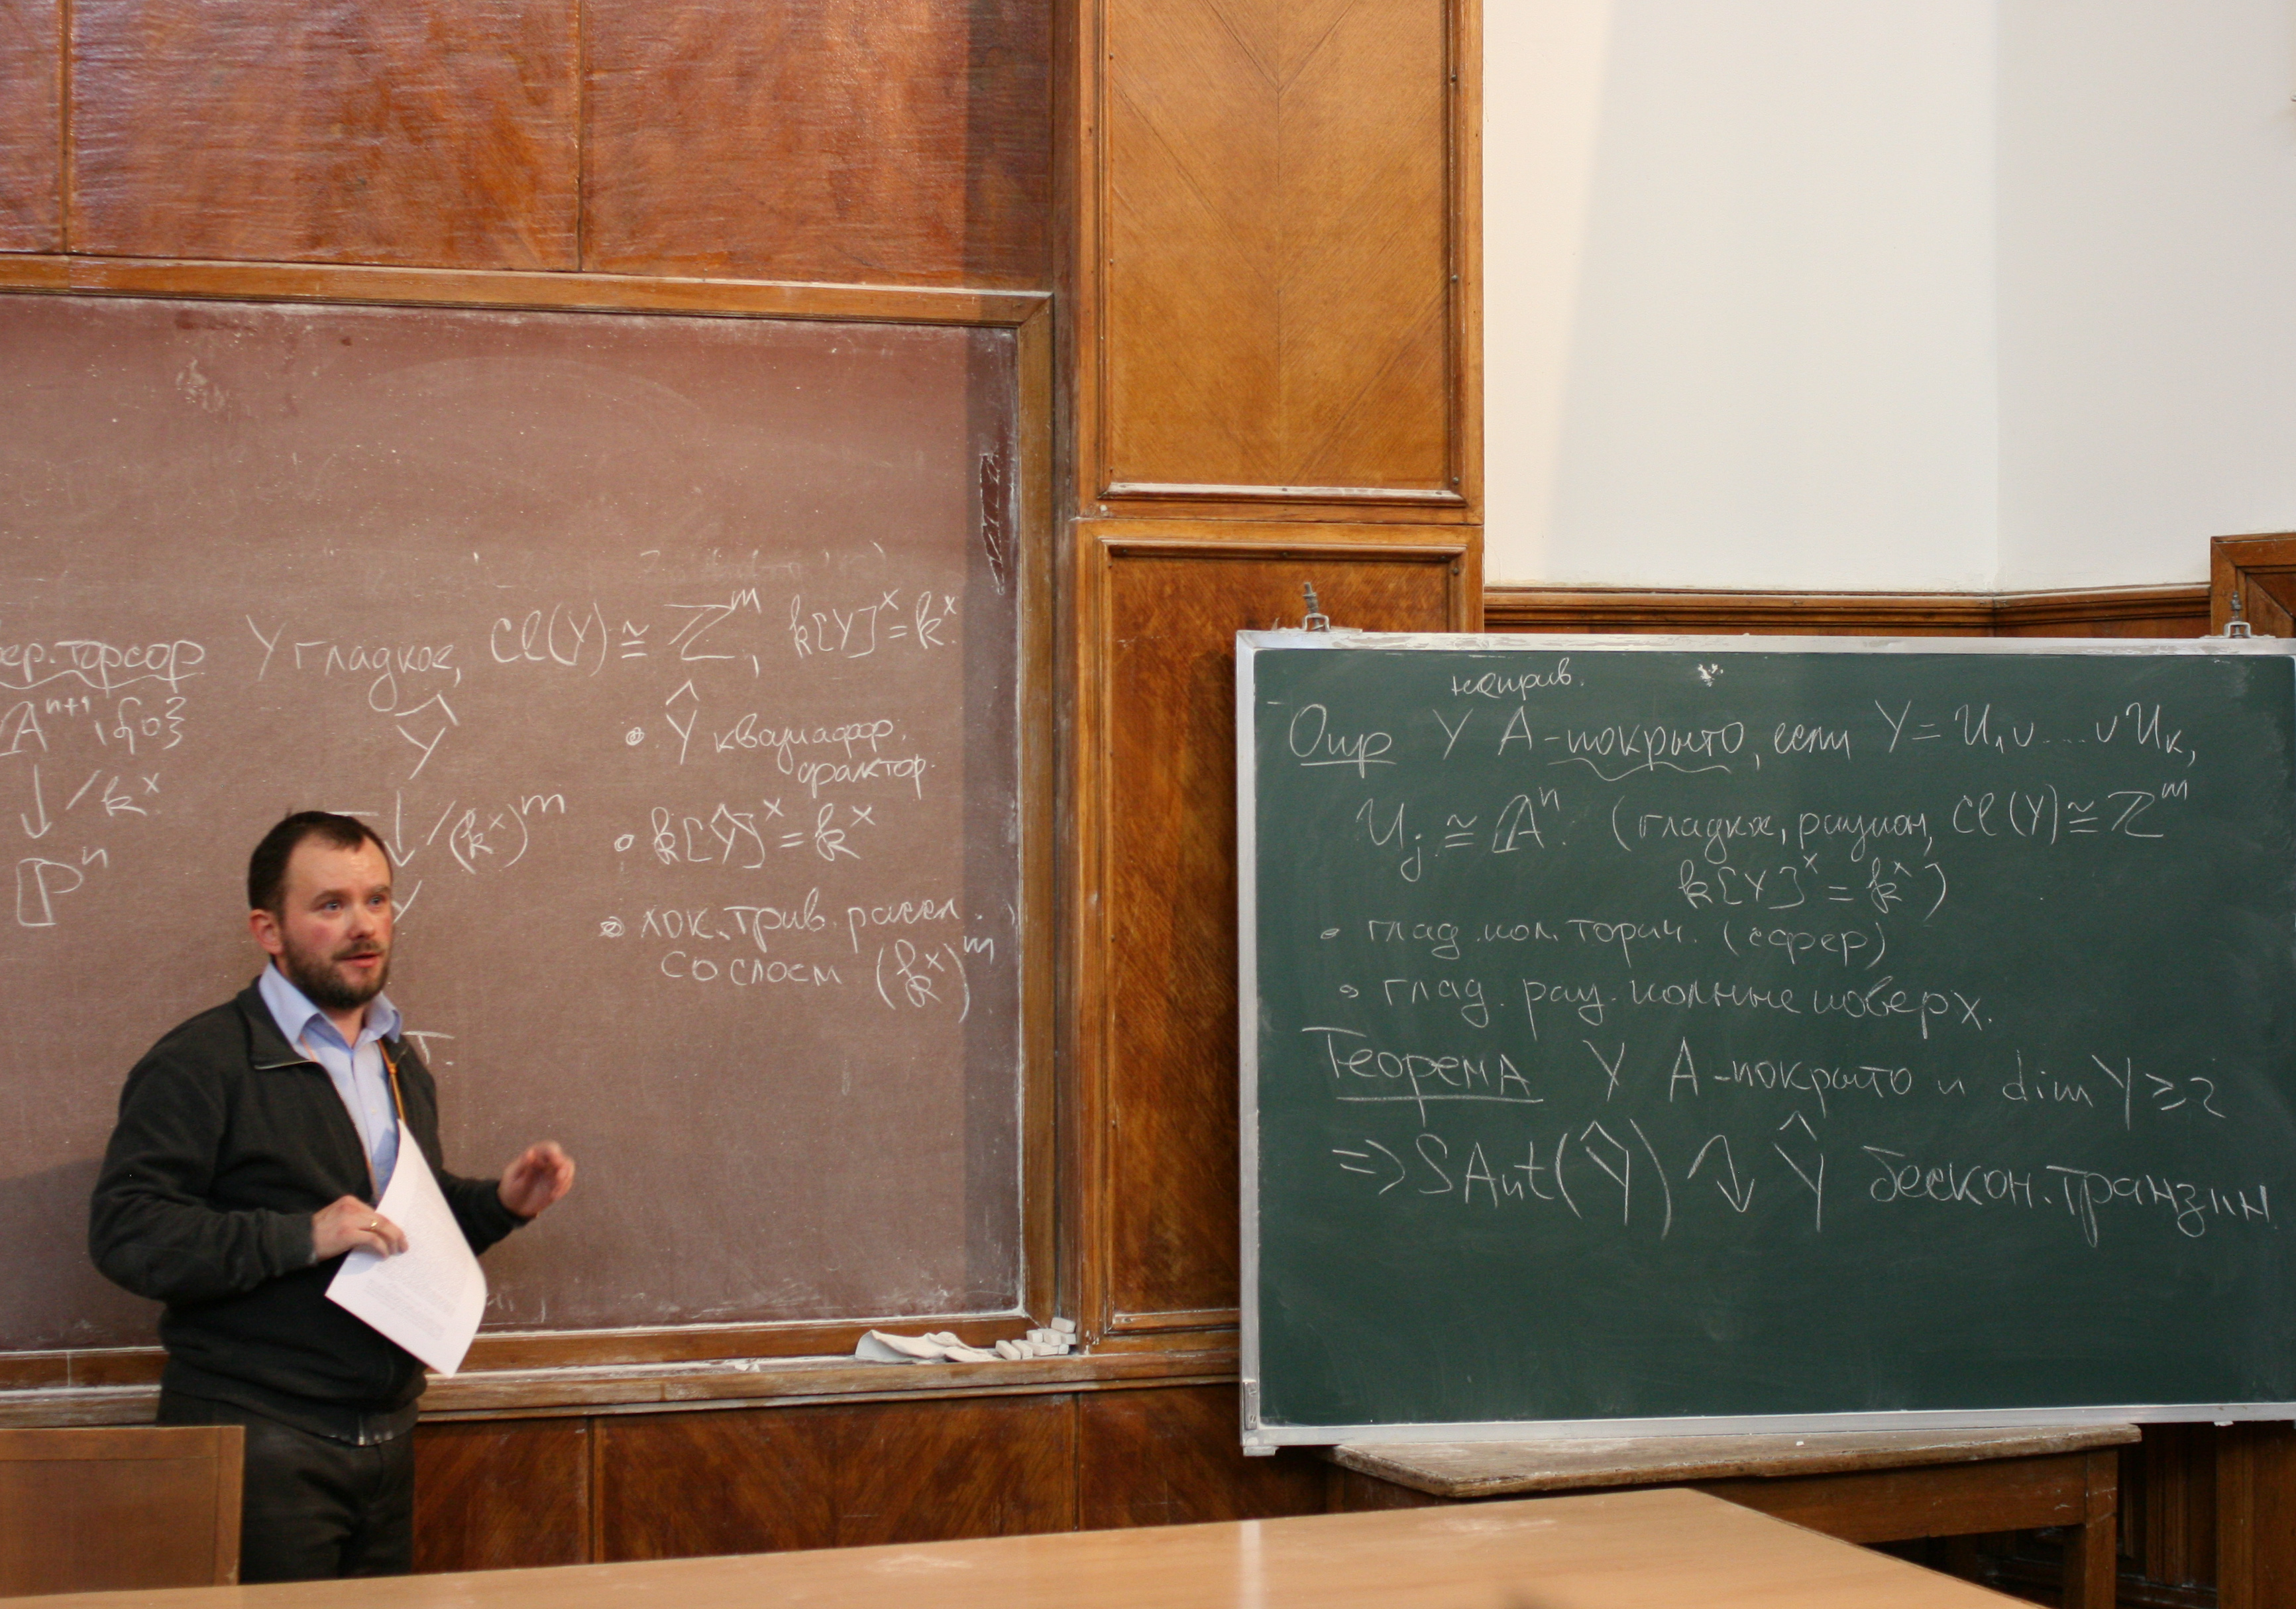 ер.торсор Y гладкое, Cl(Y) ≅ ℤᵐ, k[Y]ˣ = kˣ.
𝔸ⁿ⁺¹\{0}
↓ /kˣ
ℙⁿ
Ŷ
↓ /(kˣ)ᵐ
Y
• Ŷ квазиафф.
фактор.
• k[Ŷ]ˣ = kˣ
• лок. трив. рассл.
со слоем (kˣ)ᵐ
неприв.
Опр Y A-покрыто, если Y = U₁ ∪ ... ∪ Uₖ,
Uⱼ ≅ 𝔸ⁿ. (гладкое, рацион, Cl(Y) ≅ ℤᵐ
k[Y]ˣ = kˣ)
• глад. пол. торич. (сфер)
• глад. рац. полные поверх.
Теорема Y A-покрыто и dim Y ⩾ 2
⇒ SAut(Ŷ) ⤵ Ŷ бескон. транзит.